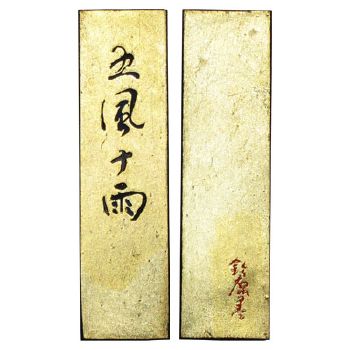 五風十雨
鈴鹿墨